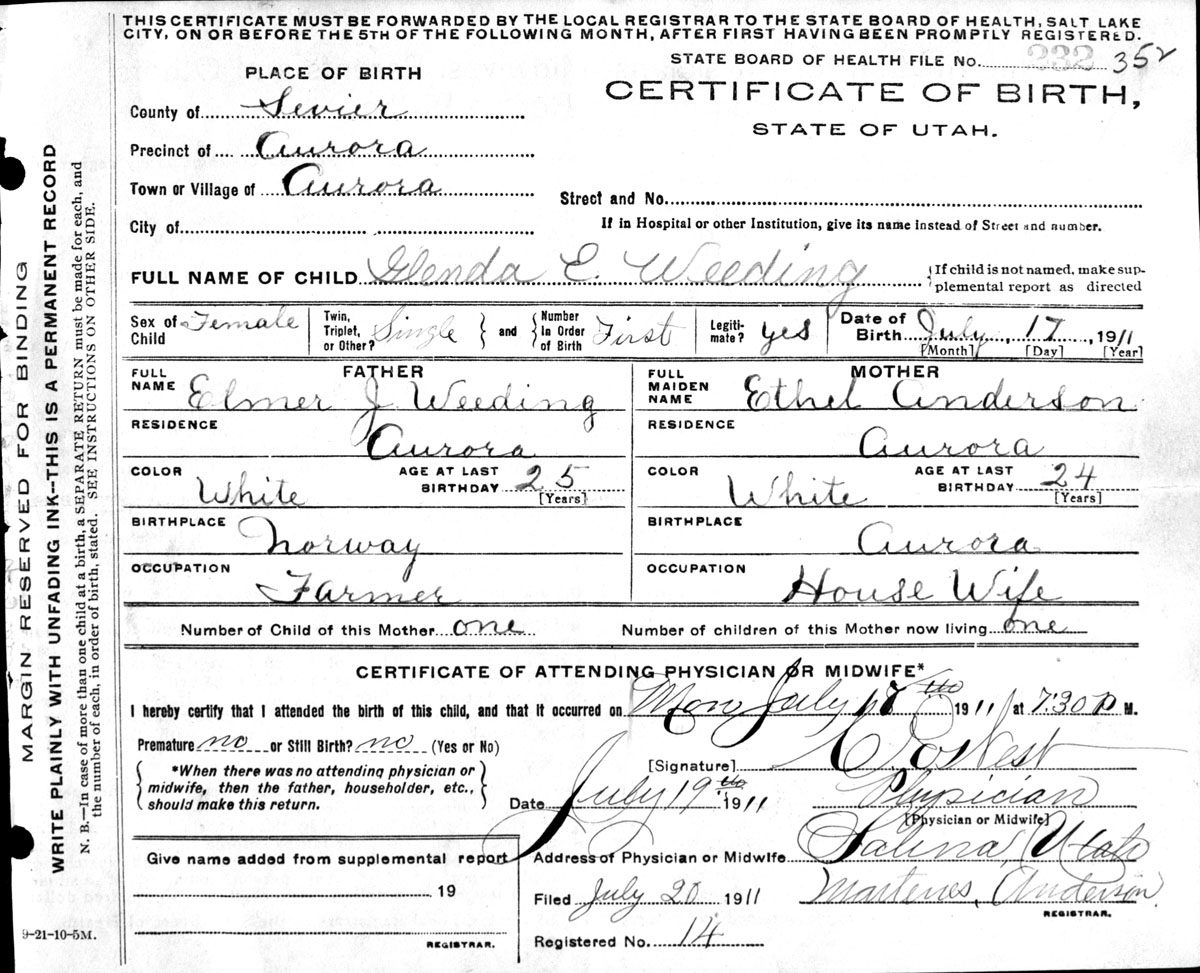 THIS CERTIFICATE MUST BE FORWARDED BY THE LOCAL REGISTRAR TO THE STATE BOARD OF HEALTH, SALT LAKE
CITY, ON OR BEFORE THE 5TH OF THE FOLLOWING MONTH, AFTER FIRST HAVING BEEN PROMPTLY REGISTERED.
STATE BOARD OF HEALTH FILE No. 232 352
PLACE OF BIRTH
CERTIFICATE OF BIRTH,
STATE OF UTAH.
County of Sevier
Precinct of Aurora
Town or Village of Aurora
Street and No.
City of
If in Hospital or other Institution, give its name instead of Street and number.
FULL NAME OF CHILD Glenda E. Weeding
{If child is not named, make sup-
plemental report as directed
Sex of Child Female Twin, Triplet, or Other? Single } and { Number In Order of Birth First Legiti- mate? yes Date of Birth July 17, 1911
[Month] [Day] [Year]
FATHER
FULL NAME Elmer J Weeding
RESIDENCE
Aurora
COLOR White AGE AT LAST BIRTHDAY 25 [Years]
BIRTHPLACE
Norway
OCCUPATION
Farmer
MOTHER
FULL MAIDEN NAME Ethel Anderson
RESIDENCE
Aurora
COLOR White AGE AT LAST BIRTHDAY 24 [Years]
BIRTHPLACE
Aurora
OCCUPATION
House Wife
Number of Child of this Mother one Number of children of this Mother now living one
CERTIFICATE OF ATTENDING PHYSICIAN OR MIDWIFE*
I hereby certify that I attended the birth of this child, and that it occurred on Mon July 17 th 1911 at 7:30 P M.
Premature no or Still Birth? no (Yes or No)
{ *When there was no attending physician or
midwife, then the father, householder, etc.,
should make this return. }
[Signature] West
Date July 19 th 1911
Physician
[Physician or Midwife]
Give name added from supplemental report
19
REGISTRAR.
Address of Physician or Midwife Salina, Utah
Filed July 20 1911 Martenes Anderson
REGISTRAR.
Registered No. 14
9-21-10-5M.
MARGIN RESERVED FOR BINDING
WRITE PLAINLY WITH UNFADING INK--THIS IS A PERMANENT RECORD
N. B.—In case of more than one child at a birth, a SEPARATE RETURN must be made for each, and
the number of each, in order of birth, stated. SEE INSTRUCTIONS ON OTHER SIDE.